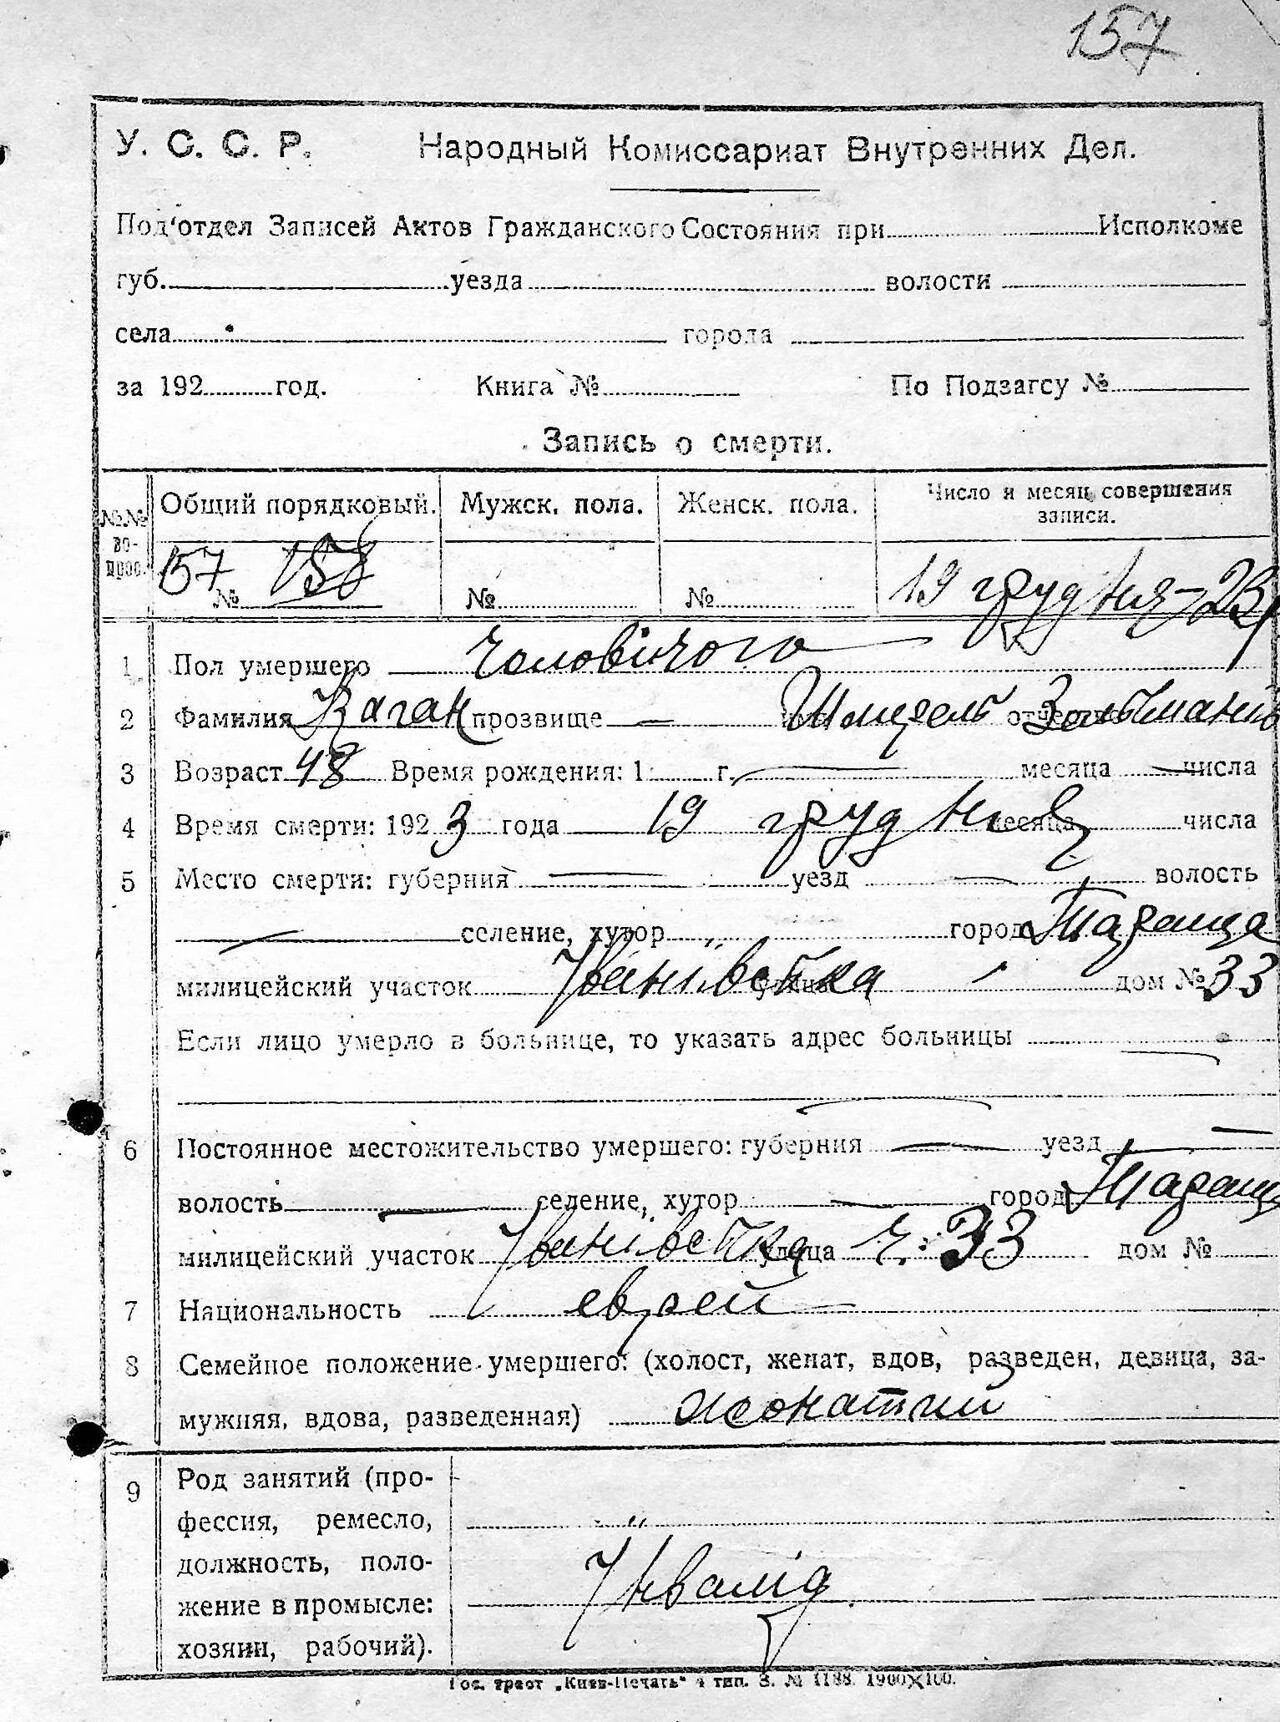 157
У. С. С. Р. Народный Комиссариат Внутренних Дел.
Под'отдел Записей Актов Гражданского Состояния при Исполкоме
губ. уезда волости
села города
за 192 год. Книга № По Подзагсу №
Запись о смерти.
№№ вопрос. Общий порядковый. Мужск. пола. Женск. пола. Число и месяц совершения записи.
157 № 158 № № 19 грудня-23
1 Пол умершего чоловічого
2 Фамилия Каган прозвище — Шмерель отчество Зальманів
3 Возраст 48 Время рождения: 1 г. — месяца — числа
4 Время смерти: 1923 года 19 грудня месяца числа
5 Место смерти: губерния — уезд — волость
— селение, хутор город Тараща
милицейский участок Іванівська улица дом № 33
Если лицо умерло в больнице, то указать адрес больницы —
6 Постоянное местожительство умершего: губерния — уезд —
волость — селение, хутор — город Тараща
милицейский участок Іванівська улица ч. 33 дом №
7 Национальность еврей
8 Семейное положение умершего: (холост, женат, вдов, разведен, девица, за-
мужняя, вдова, разведенная) жонатий
9 Род занятий (про-
фессия, ремесло,
должность, поло-
жение в промысле:
хозяин, рабочий).
Інвалід.
Гос. трест „Киев-Печать" 4 тип. З. № 1188. 1900×100.